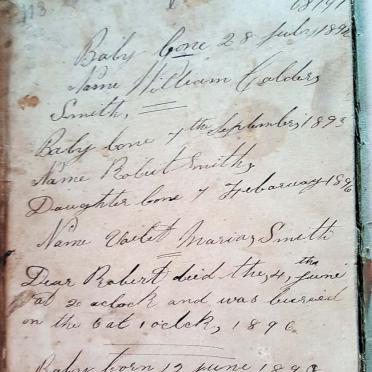 113
Baby bone 28 July 1892
Name William Calder,
Smith,
Baby bone 7th September, 1893
Name Robert Smith,
Daughter bone 7 Febaruary 1896
Name Vailet Mariar Smith
Dear Robert died the, 4, th June
at 2c aclock and was buried
on the 6 at 1 oclck, 1896
Baby born 12 June 1898